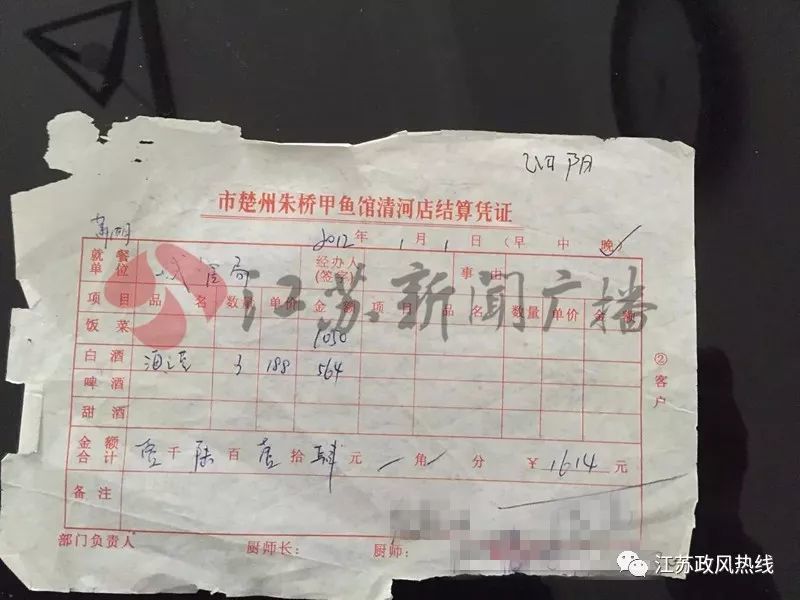 泗阳
市楚州朱桥甲鱼馆清河店结算凭证
2012年1月1日（早 中 晚✓）
就餐单位 城管局 经办人(签字) 事由
项目 品名 数量 单价 金额 项目 品名 数量 单价 金额
饭菜 1050
白酒 3 188 564
啤酒
甜酒
金额合计 壹千陆百壹拾肆元 角 分 ￥1614元
备注
②客户
部门负责人 厨师长： 厨师：
江苏新闻广播
江苏政风热线